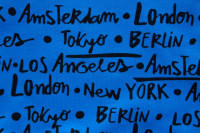 • AMSTERDAM • LONDON •
LES • TOKYO • BERLIN •
IN • LOS ANGELES • AMSTE
• LONDON • NEW YORK •
• TOKYO • BERLIN • LO